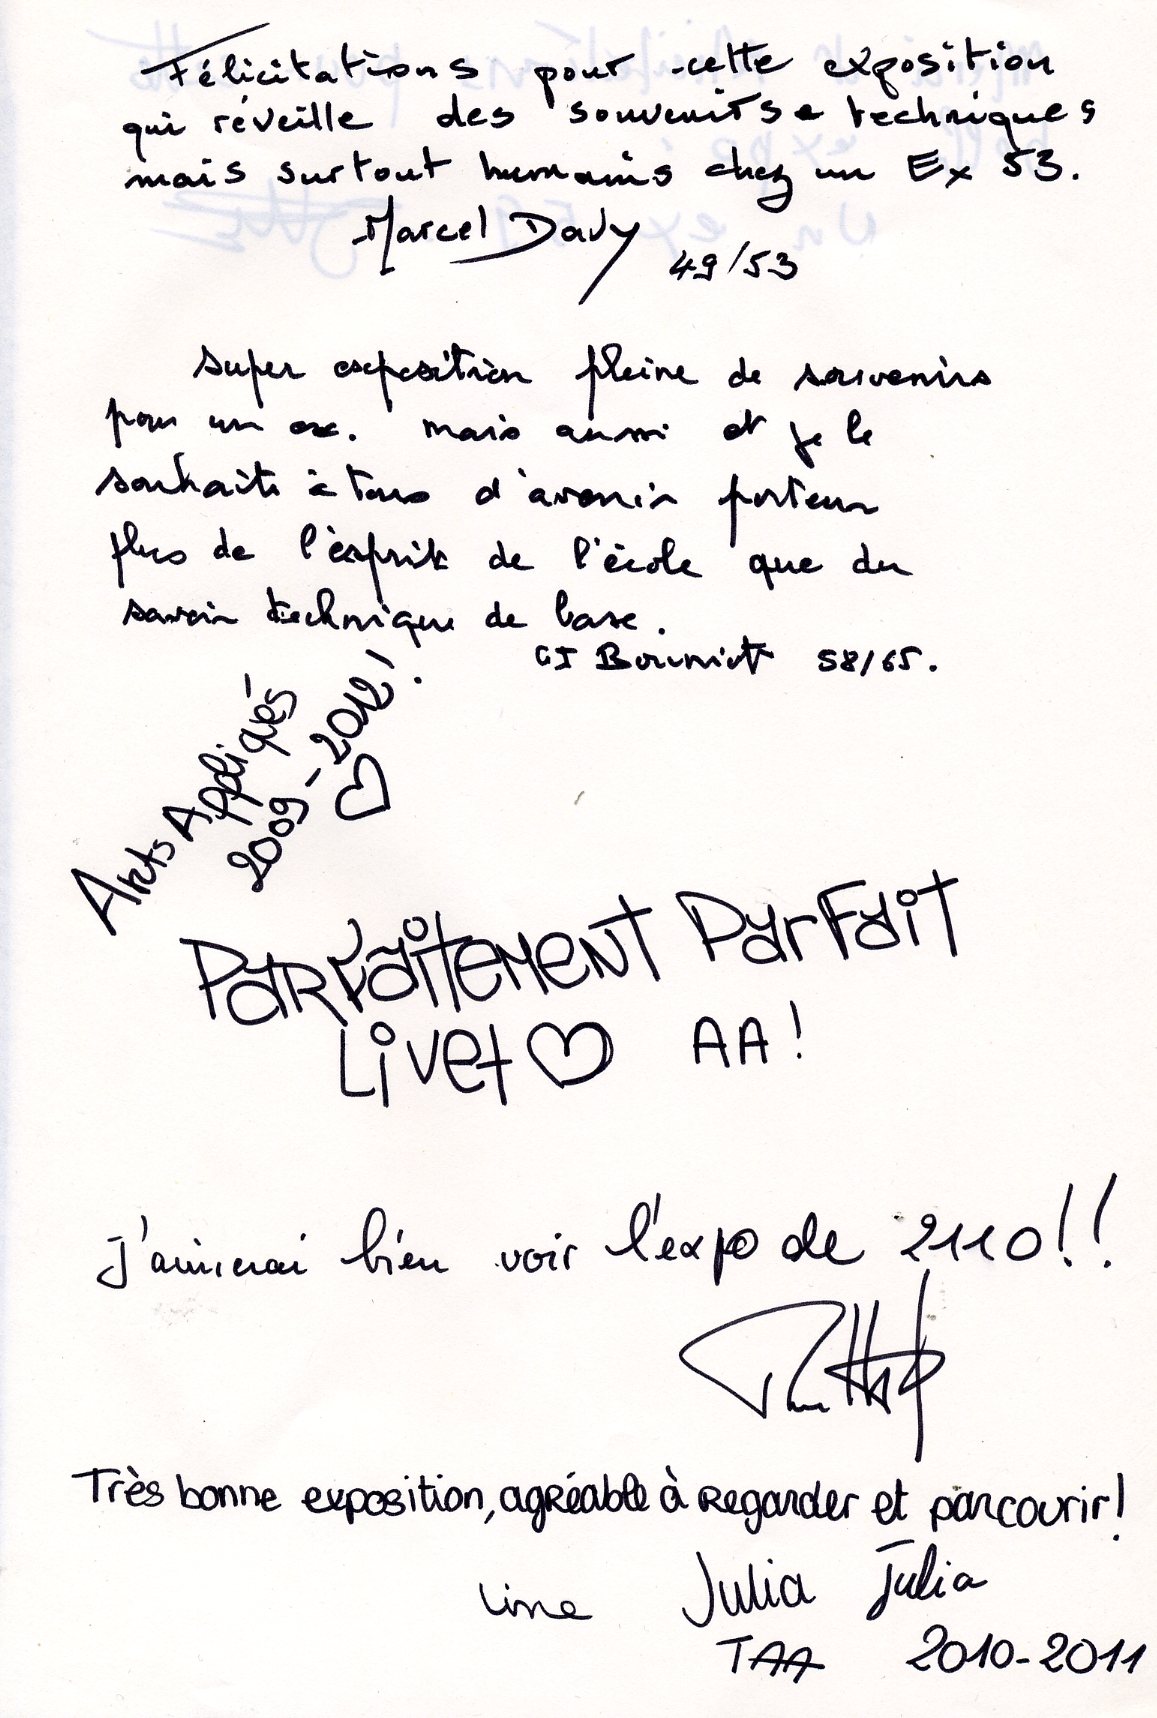 Félicitations pour cette exposition
qui réveille des souvenirs techniques
mais surtout humains chez un Ex 53.
Marcel Davy 49/53
super exposition pleine de souvenirs
pour un ex. mais aussi et je le
souhaite à tous d'avenir porteur
plus de l'ésprit de l'école que du
savoir technique de base.
58/65.
Arts Appliqués
2009-2012!
♡
Parfaitement Parfait
Livet ♡ AA!
J'aimerai bien voir l'expo de 2110!!
Très bonne exposition, agréable à regarder et parcourir!
Line Julia Julia
TAA 2010-2011